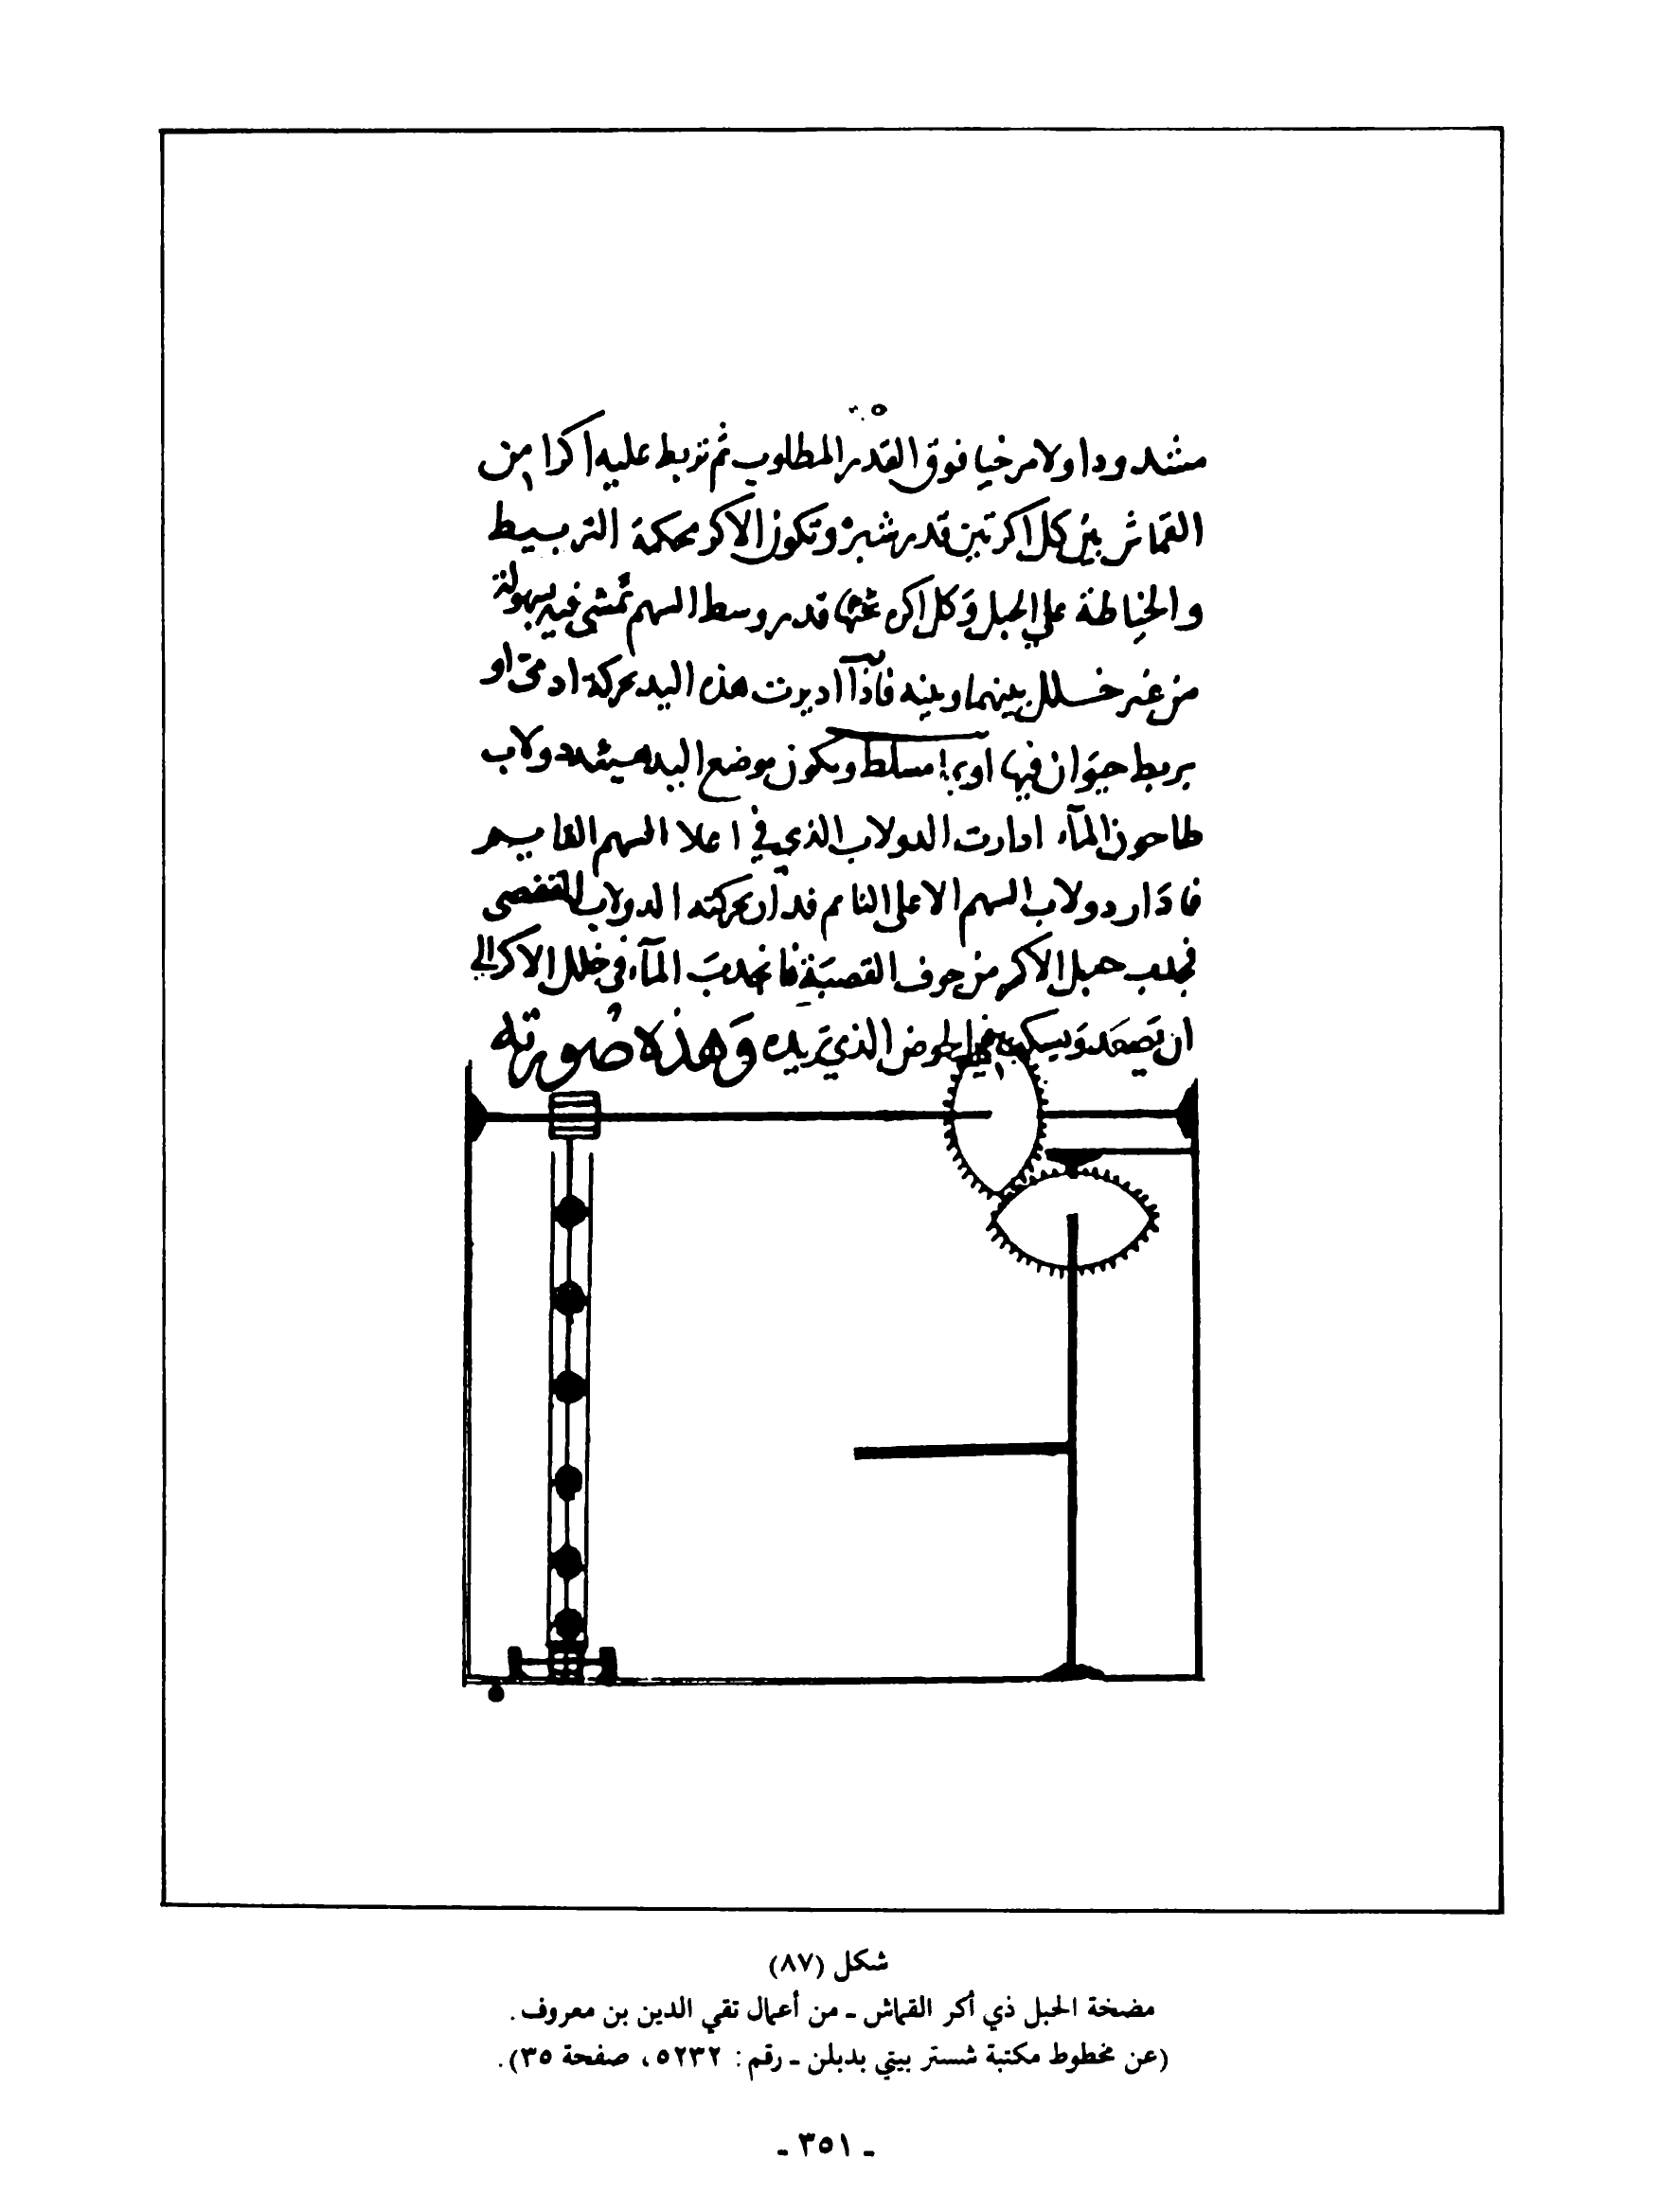 مشدودا ولا مرخيا فوق القدر المطلوب ثم تربط عليه اكرا من
القماش بين كل اكرتين قدر شبر وتكون الاكر محكمة التربيط
والخياطة على الحبل وكل اكره تخنها قدر وسط السهم تمشى فيه بسهولة
من غير خلل بينهما وبينه فاذا اديرت هذه اليد بحركة ادمى او
بربط حيوان فيها او بما مسلط ويكون موضع اليد دولاب
طاحون المآء ادارت الدولاب الذي في اعلا السهم القايم
فادار دولاب السهم الاعلى النايم فدار بحركته الدولاب القفصى
فجدب حبل الاكر من جوف القصبة فانجدب المآء في خلل الاكر الي
ان يصعد ويسكب في الحوض الذي تريده وهذه صورته
شكل (٨٧)
مضخة الحبل ذي أكر القماش ـ من أعمال تقي الدين بن معروف.
(عن مخطوط مكتبة شستر بيتي بدبلن ـ رقم: ٥٢٣٢، صفحة ٣٥).
ـ ٣٥١ ـ